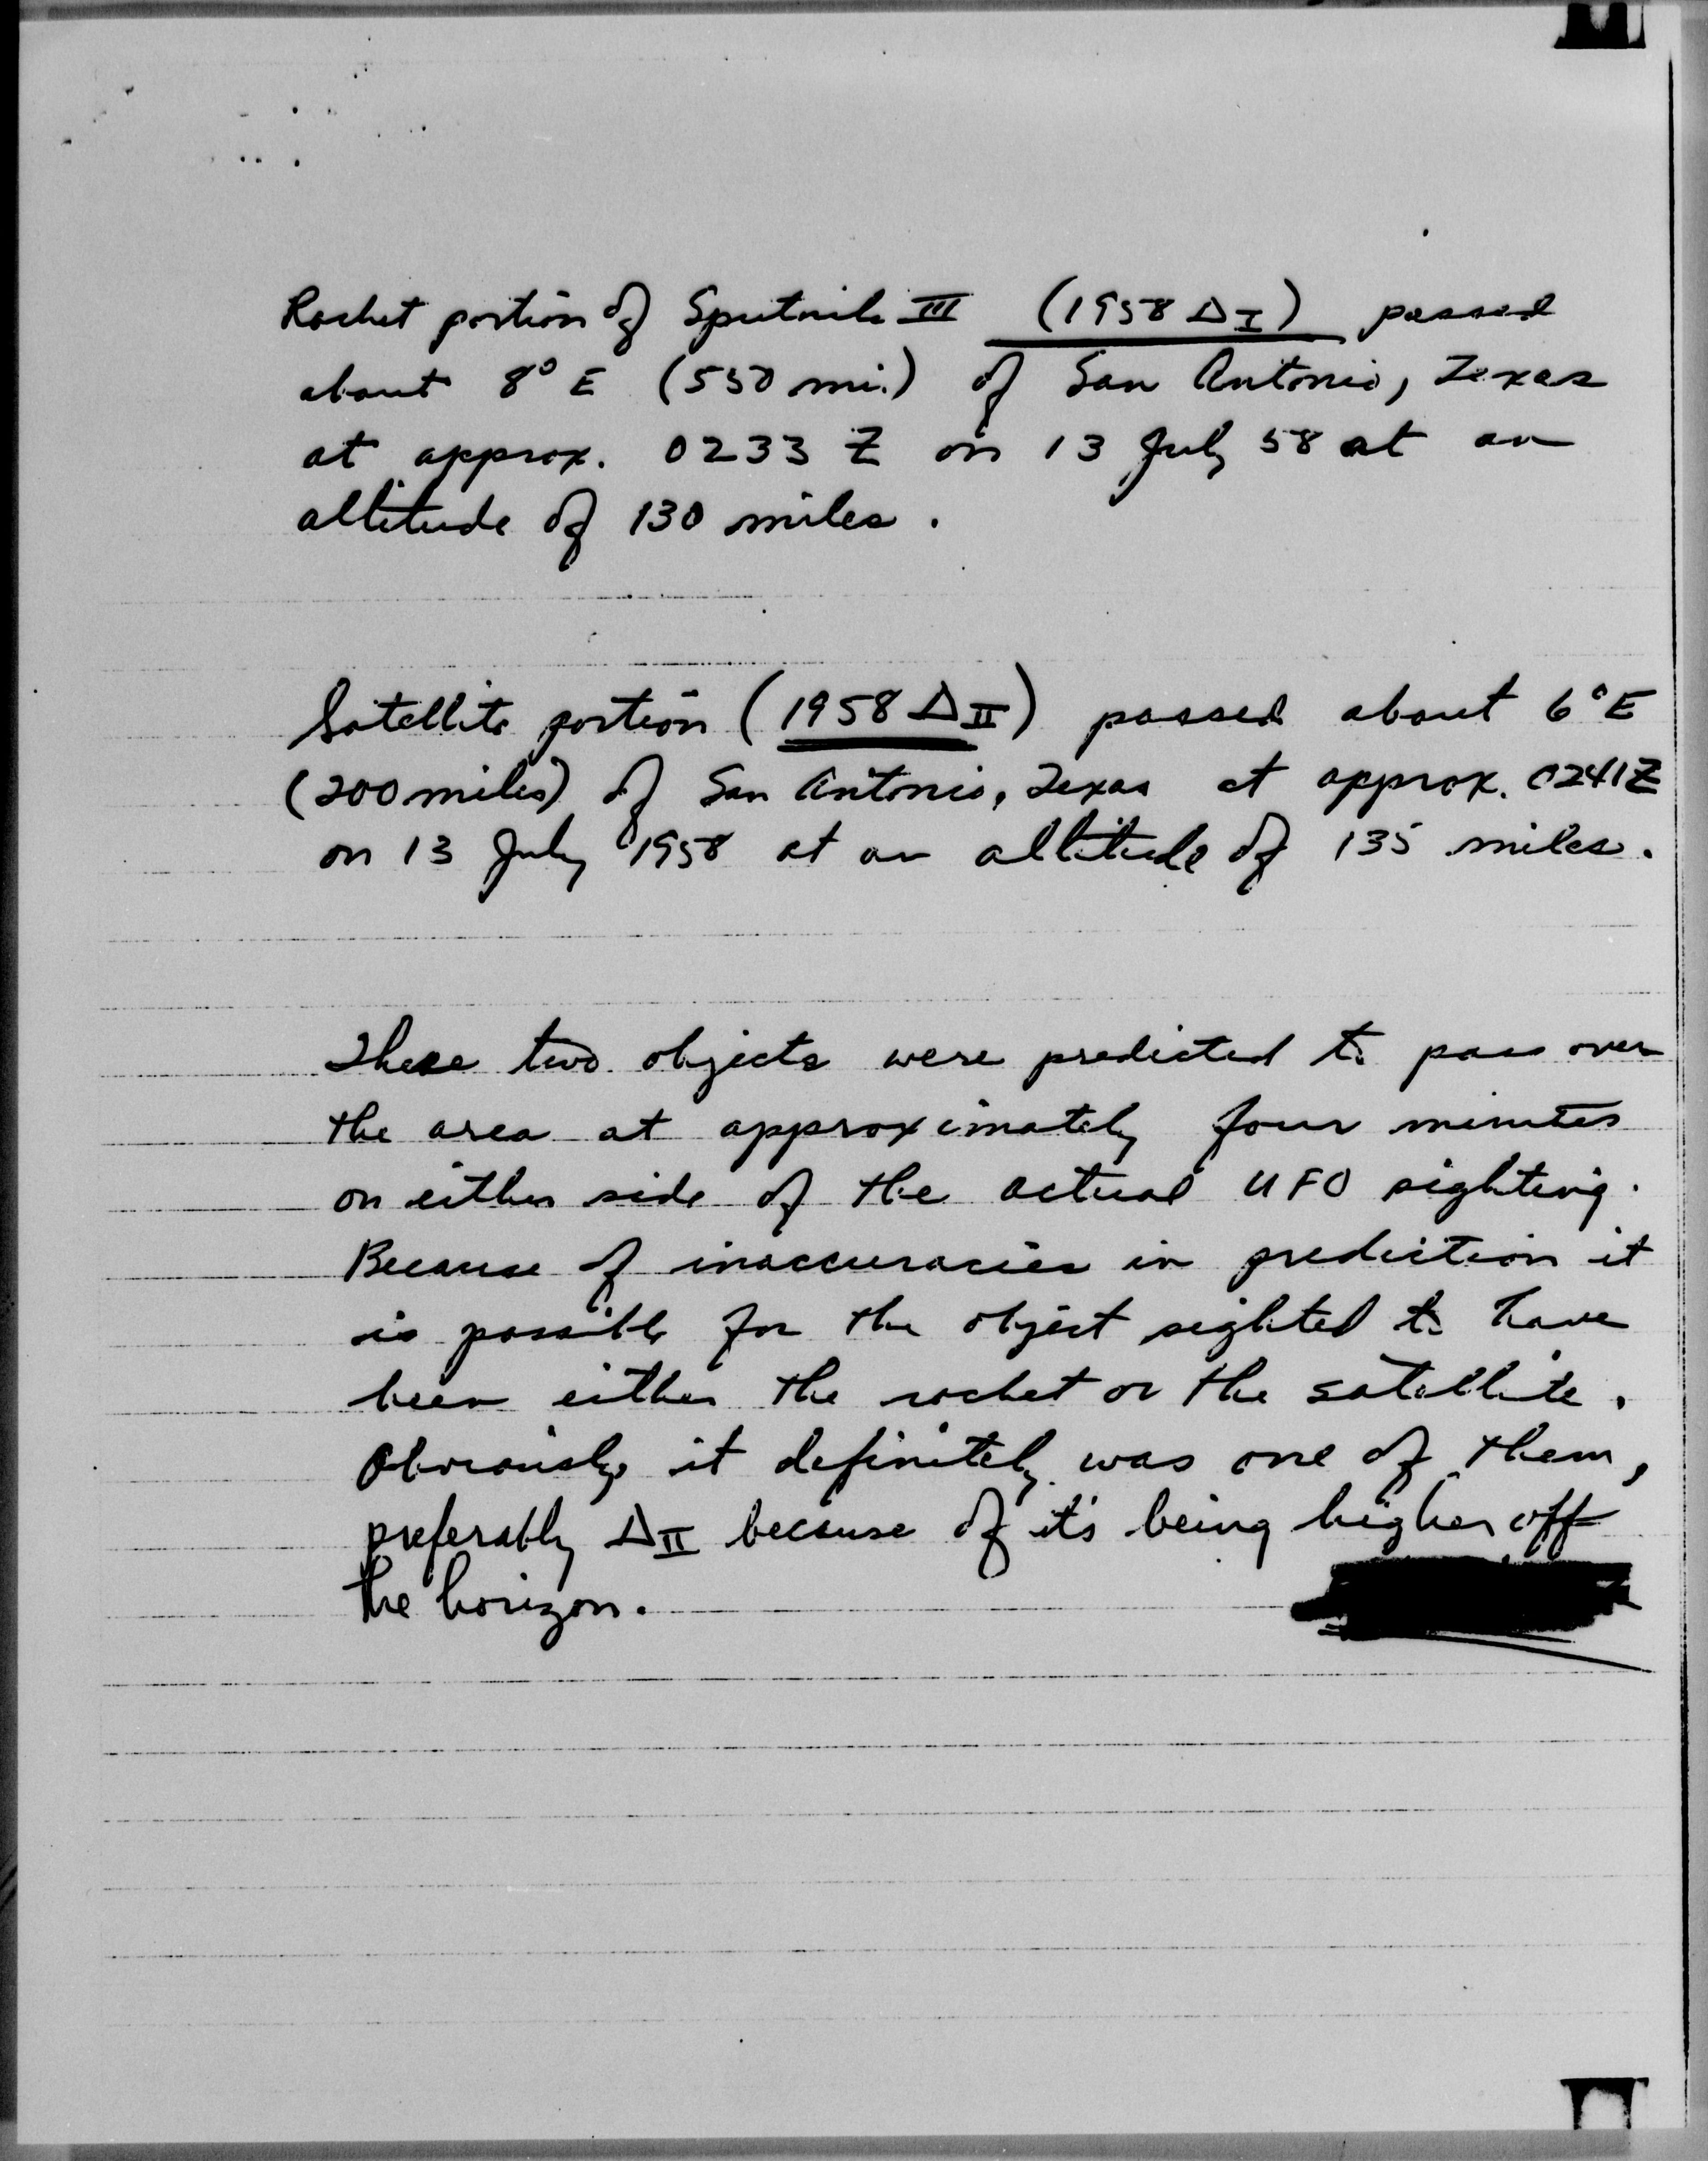 Rocket portion of Sputnik III (1958 Δ I) passed
about 8° E (550 mi.) of San Antonio, Texas
at approx. 0233 Z on 13 July 58 at an
altitude of 130 miles.
Satellite portion (1958 Δ II) passed about 6° E
(200 miles) of San Antonio, Texas at approx. 0241Z
on 13 July 1958 at an altitude of 135 miles.
These two objects were predicted to pass over
the area at approximately four minutes
on either side of the actual UFO sighting.
Because of inaccuracies in prediction it
is possible for the object sighted to have
been either the rocket or the satellite.
Obviously it definitely was one of them,
preferably Δ II because of it's being higher off
the horizon.